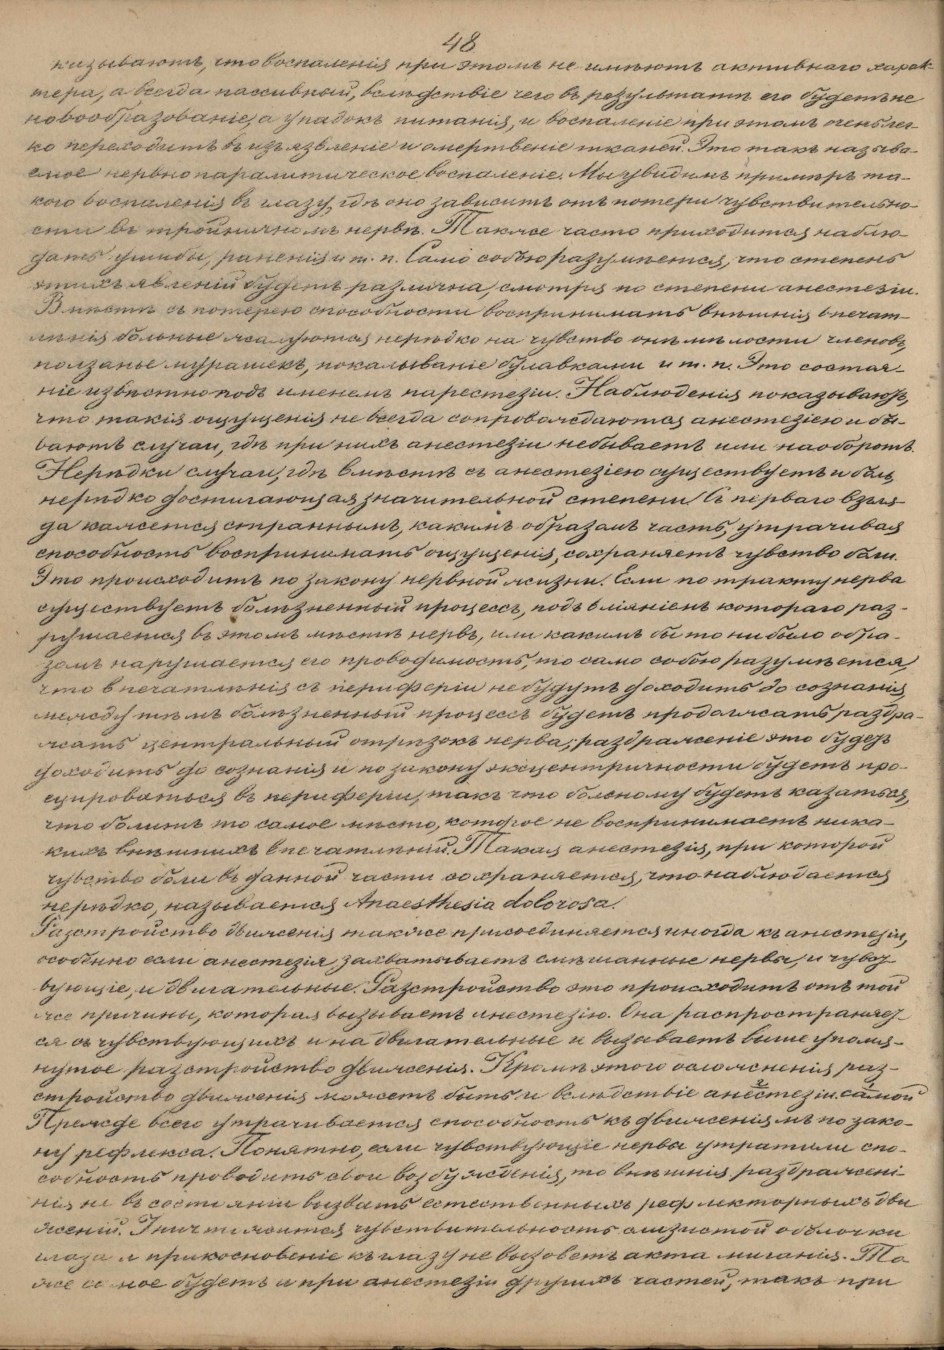 48
казываютъ, что воспаленія при этомъ не имѣютъ активнаго харак-
тера, а всегда пассивный, вслѣдствіе чего въ результатѣ его будетъ не
новообразованіе, а упадокъ питанія, и воспаленіе при этомъ очень лег-
ко переходитъ въ изъязвленіе и омертвеніе тканей. Это такъ называ-
емое нервно паралитическое воспаленіе. Мы увидимъ примѣръ та-
кого воспаленія въ глазу, гдѣ оно зависитъ отъ потери чувствительно-
сти въ тройничномъ нервѣ. Также часто приходится наблю-
дать ушибы, раненія и т. п. Само собою разумѣется, что степень
этихъ явленій будетъ различна, смотря по степени анестезіи.
Вмѣстѣ съ потерею способности воспринимать внѣшнія впечат-
лѣнія больные жалуются нерѣдко на чувство онѣмѣлости членовъ,
ползанье мурашекъ, покалываніе булавками и т. п. Это состоя-
ніе извѣстно подъ именемъ парестезіи. Наблюденія показываютъ,
что такія ощущенія не всегда сопровождаются анестезіею и бы-
ваютъ случаи, гдѣ при нихъ анестезіи небываетъ или наоборотъ.
Нерѣдки случаи, гдѣ вмѣстѣ съ анестезіею существуетъ и боль,
нерѣдко достигающая значительной степени. Съ перваго взгля-
да кажется страннымъ, какимъ образомъ часть, утрачивая
способность воспринимать ощущенія, сохраняетъ чувство боли.
Это происходитъ по закону нервной жизни. Если по тракту нерва
существуетъ болѣзненный процессъ, подъ вліяніемъ котораго раз-
рушается въ этомъ мѣстѣ нервъ, или какимъ бы то ни было обра-
зомъ нарушается его проводимость, то само собою разумѣется,
что впечатлѣнія съ периферіи небудутъ доходить до сознанія,
между тѣмъ болѣзненный процессъ будетъ продолжать раздра-
жать центральный отрѣзокъ нерва; раздраженіе это будетъ
доходить до сознанія и по закону эксцентричности будетъ про-
ецироваться въ периферіи, такъ что больному будетъ казаться,
что болитъ то самое мѣсто, которое не воспринимаетъ ника-
кихъ внѣшнихъ впечатлѣній. Такая анестезія, при которой
чувство боли въ данной части сохраняется, что наблюдается
нерѣдко, называется Anaesthesia dolorosa.
Разстройство движенія также присоединяется иногда къ анестезіи,
особенно если анестезія захватываетъ смѣшанные нервы, и чувст-
вующіе, и двигательные. Разстройство это происходитъ отъ той
же причины, которая вызываетъ анестезію. Она распространяет-
ся съ чувствующихъ и на двигательные и вызываетъ выше упомя-
нутое разстройство движенія. Кромѣ этого осложненія раз-
стройство движенія можетъ быть и вслѣдствіе анестезіи самой
Прежде всего утрачивается способность къ движеніямъ по зако-
ну рефлекса. Понятно, если чувствующіе нервы утратили спо-
собность проводить свои возбужденія, то внѣшнія раздражені-
нія не въ состояніи вызвать естественныхъ рефлекторныхъ дви
женій. Уничтожится чувствительность слизистой оболочки
глаза и прикосновеніе къ глазу не вызоветъ акта миганія. То
же самое будетъ и при анестезіи другихъ частей, такъ при